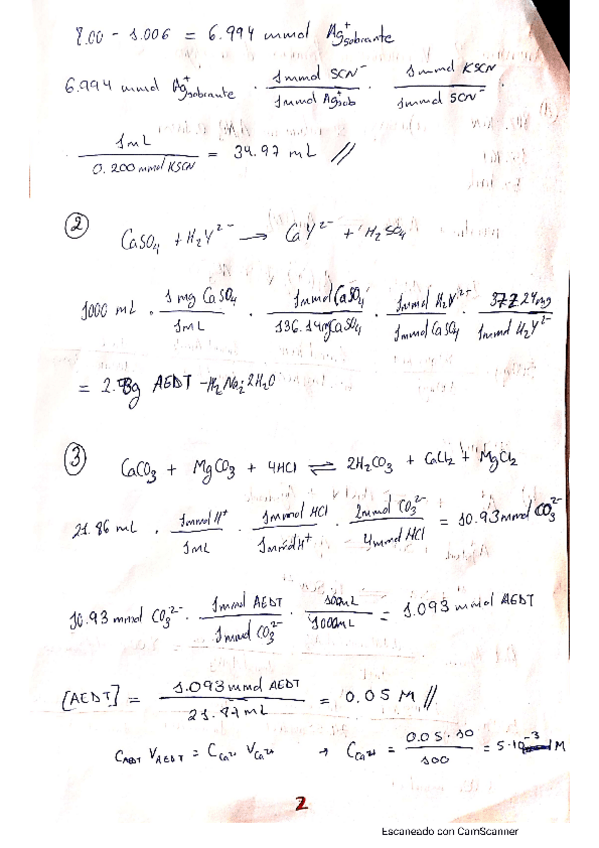 8.00 - 1.006 = 6.994 mmol Ag⁺sobrante
6.994 mmol Ag⁺sobrante · 1mmol SCN⁻ / 1mmol Ag⁺sob · 1mmol KSCN / 1mmol SCN⁻ ·
· 1mL / 0.200 mmol KSCN = 34.97 mL //
② CaSO₄ + H₂Y²⁻ → CaY²⁻ + H₂SO₄
1000 mL · 1 mg CaSO₄ / 1mL · 1mmol CaSO₄ / 136.14mg CaSO₄ · 1mmol H₂Y²⁻ / 1mmol CaSO₄ · 372.24mg / 1mmol H₂Y²⁻
= 2.73g AEDT-H₂Na₂·2H₂O
③ CaCO₃ + MgCO₃ + 4HCl ⇌ 2H₂CO₃ + CaCl₂ + MgCl₂
21.86 mL · 1mmol H⁺ / 1mL · 1mmol HCl / 1mmol H⁺ · 2mmol CO₃²⁻ / 4mmol HCl = 10.93mmol CO₃²⁻
10.93 mmol CO₃²⁻ · 1mmol AEDT / 1mmol CO₃²⁻ · 100mL / 1000mL = 1.093 mmol AEDT
[AEDT] = 1.093 mmol AEDT / 21.87 mL = 0.05 M //
C_AEDT V_AEDT = C_Ca²⁺ V_Ca²⁺ → C_Ca²⁺ = 0.05 · 10 / 100 = 5·10⁻³ M
2
Escaneado con CamScanner